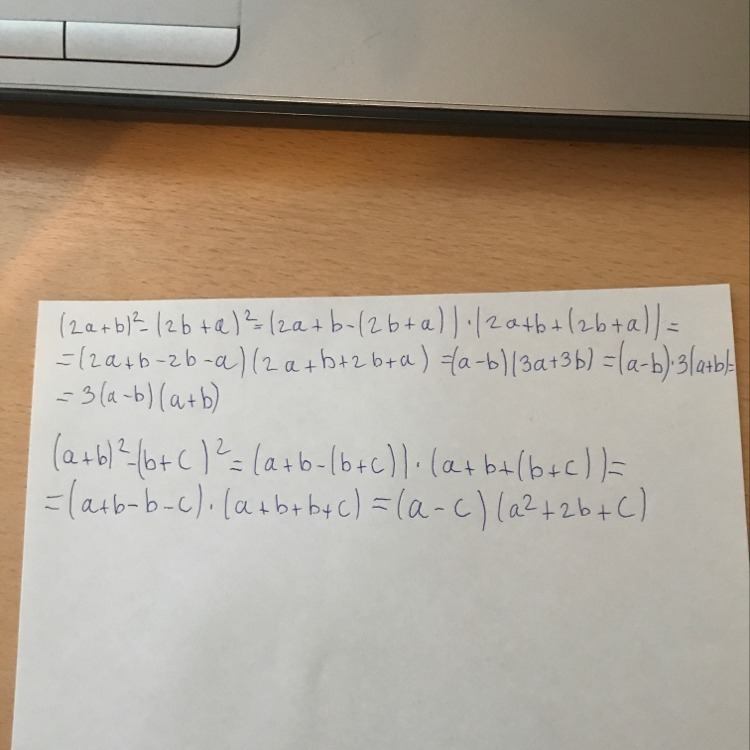 (2a+b)²-(2b+a)²=(2a+b-(2b+a))·(2a+b+(2b+a))=
=(2a+b-2b-a)(2a+b+2b+a)=(a-b)(3a+3b)=(a-b)·3(a+b)=
=3(a-b)(a+b)
(a+b)²-(b+c)²=(a+b-(b+c))·(a+b+(b+c))=
=(a+b-b-c)·(a+b+b+c)=(a-c)(a²+2b+c)